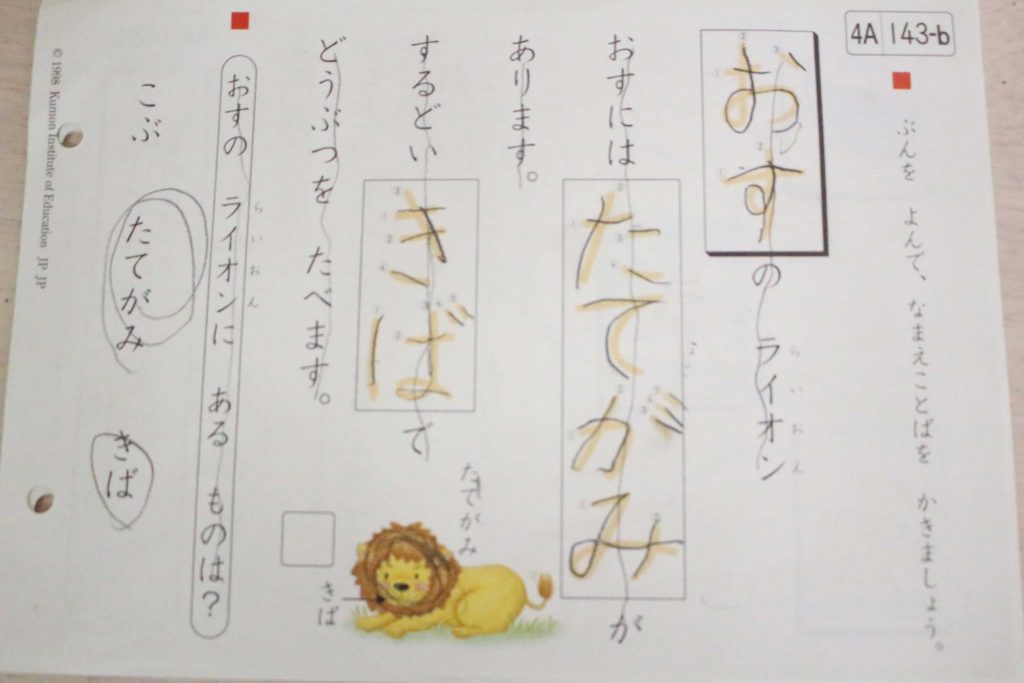 4A 143-b
ぶんを よんで、なまえことばを かきましょう。
おすの ライオン
らいおん
おすには たてがみが
あります。
するどい きばで
どうぶつを たべます。
たてがみ
きば
おすの ライオンに ある ものは?
らいおん
こぶ たてがみ きば
© 1998 Kumon Institute of Education JP JP